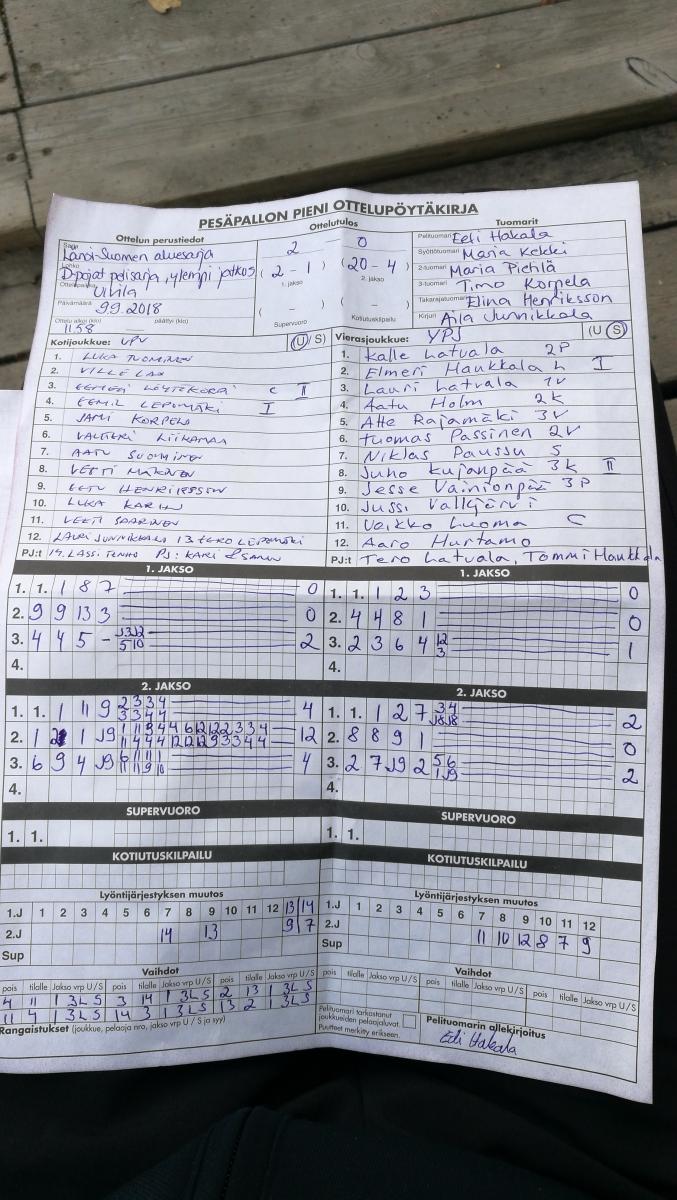 PESÄPALLON PIENI OTTELUPÖYTÄKIRJA
Ottelun perustiedot
Länsi-Suomen aluesarja
D-pojat pelisarja, ylempi jatkos
Ulvila
Päivämäärä 9.9.2018
Ottelu alkoi (klo) 11.58 päättyi (klo)
Ottelutulos
2 0
( 2 - 1 ) ( 20 - 4 )
1. jakso 2. jakso
( - ) ( - )
Supervuoro Kotiutuskilpailu
Tuomarit
Pelituomari Eeli Hakala
Syöttötuomari Maria Kekki
2-tuomari Maria Piehlä
3-tuomari Timo Korpela
Takarajatuomari Elina Henriksson
Kirjuri Aila Junnikkala
Kotijoukkue: UPV (U/S)
1. LUKA TUOMINEN
2. VILLE
3. LÖYTÖKORPI C II
4. EEMIL LEPOMÄKI I
5. JAMI KORPELA
6. VALTTERI LIIKAMAA
7. AATU SUOMINEN
8. VEETI MÄKINEN
9. EETU HENRIKSSON
10. LUKA KARHU
11. VEETI SAARINEN
12. LAURI JUNNIKKALA 13 EERO LEPOMÄKI
PJ:t 14. LASSI TENHO PJ: KARI
Vierasjoukkue: YPJ (U/S)
1. Kalle Latvala 2P
2. Elmeri Haukkala L I
3. Lauri Latvala 1V
4. Aatu Holm 2K
5. Atte Rajamäki 3V
6. Tuomas Passinen 2V
7. Niklas Paussu S
8. Juho Kujanpää 3K II
9. Jesse Vainionpää 3P
10. Jussi Valkjärvi
11. Veikko Luoma C
12. Aaro Hurtamo
PJ:t Tero Latvala, Tommi Haukkala
1. JAKSO
1. 1. 1 8 7 0
2. 9 9 13 3 0
3. 4 4 5 - 2
4.
1. JAKSO
1. 1. 1 2 3 0
2. 4 4 8 1 0
3. 2 3 6 4 12 3 1
4.
2. JAKSO
1. 1. 1 11 9 2 3 3 4 3 3 4 4 4
2. 1 1 J9 12
3. 6 9 4 J9 4
4.
2. JAKSO
1. 1. 1 2 7 3 4 2
2. 8 8 9 1 0
3. 2 7 J9 2 5 6 1 J9 2
4.
SUPERVUORO
1. 1.
SUPERVUORO
1. 1.
KOTIUTUSKILPAILU
KOTIUTUSKILPAILU
Lyöntijärjestyksen muutos
1.J 1 2 3 4 5 6 7 8 9 10 11 12 13 14
2.J 14 13 9 7
Sup
Lyöntijärjestyksen muutos
1.J 1 2 3 4 5 6 7 8 9 10 11 12
2.J 11 10 12 8 7 9
Sup
Vaihdot
pois tilalle Jakso vrp U/S pois tilalle Jakso vrp U/S pois tilalle Jakso vrp U/S
4 11 1 3L S 3 14 1 3L S 2 13 1 3L S
11 4 1 3L S 14 3 1 3L S 13 2 1 3L S
Rangaistukset (joukkue, pelaaja nro, jakso vrp U / S ja syy)
Vaihdot
pois tilalle Jakso vrp U/S pois tilalle Jakso vrp U/S pois tilalle Jakso vrp U/S
Pelituomari tarkastanut
joukkueiden pelaajaluvat.
Puutteet merkitty erikseen.
Pelituomarin allekirjoitus
Eeli Hakala